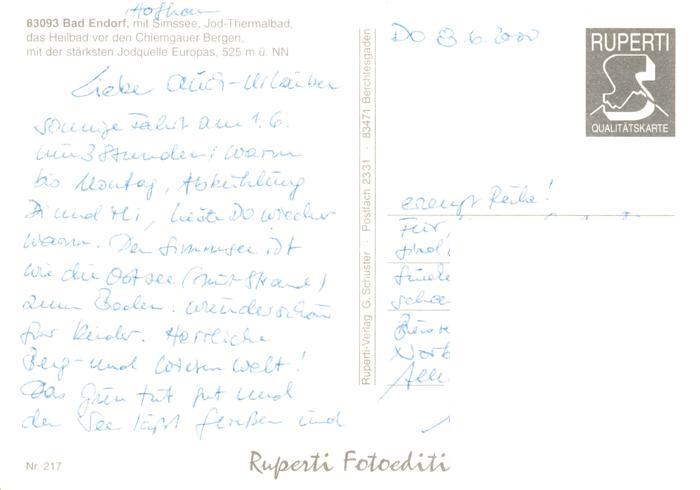 Hofhan
83093 Bad Endorf, mit Simssee, Jod-Thermalbad,
das Heilbad vor den Chiemgauer Bergen,
mit der stärksten Jodquelle Europas, 525 m ü. NN
Liebe Auch-Urlauber
sonnige Fahrt am 1.6.
nur 3 Stunden; warm
bis Montag, Abkühlung
Di und Mi, heute Do wieder
warm. Der Simmsee ist
wie die Ostsee (mit Strand)
zum Baden: wunderschön
für Kinder. Herrliche
Berg- und Wiesen Welt!
Das Grün tut gut und
der See läßt grüßen und
Nr. 217
Ruperti-Verlag G. Schuster · Postfach 2331 · 83471 Berchtesgaden
Ruperti Fotoediti
Do 8.6.2000
RUPERTI
QUALITÄTSKARTE
Reihe!
Für,
sind